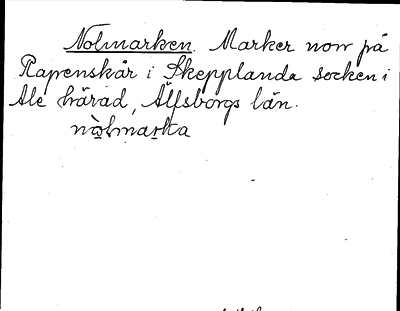 Nolmarken. Marker norr på
Rapenskår i Skepplanda socken i
Ale härad, Älfsborgs län.
nòlmarka